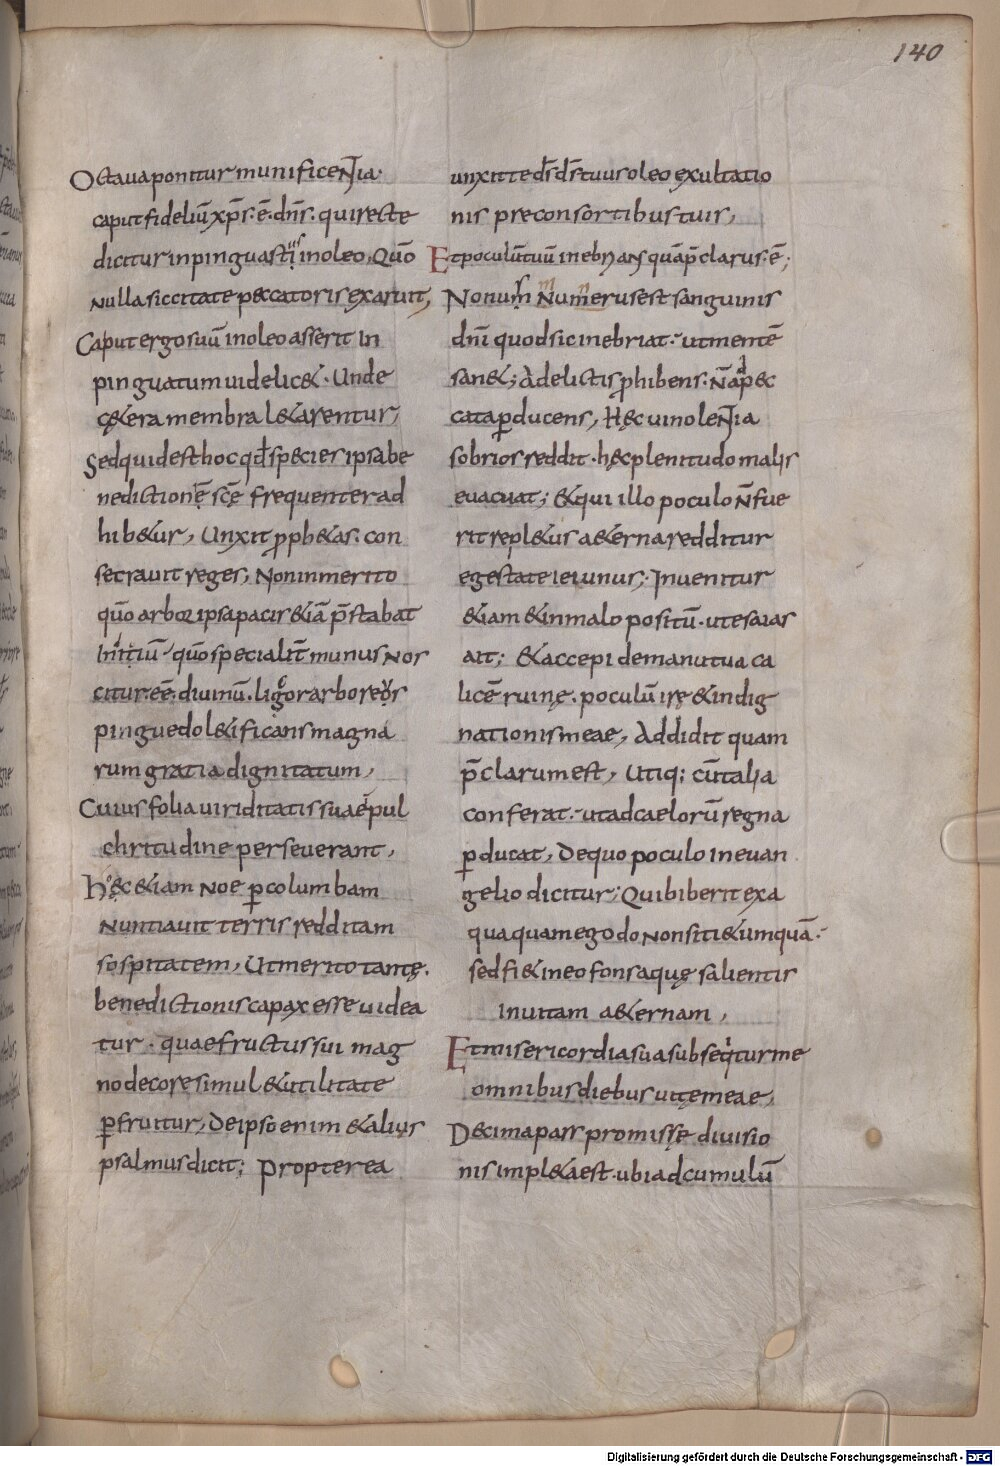 140
Octaua ponitur munificentia.
caput fideliū xp̄s. ē. dn̄s. qui recte
dicitur inpinguastius in oleo, Quō
nulla siccitate peccatoris exaruit,
Caput ergo suū in oleo asserit In
pinguatum uidelic&. Unde
c&era membra l&arentur,
Sed quid est hoc qđ species ipsa be
nedictionē scē frequenter ad
hib&ur, Unxit proph&as. con
secrauit reges, Non inmerito
quō arbor ipsa pacis &iā p̄stabat
Initiū quō specialit̄ munus nos
citur. eē. diuinū. ligorarboreos
pinguedo l&ificans magna
rum gratia dignitatum,
Cuius folia uiriditatis suae pul
chritudine perseuerant,
Hęc &iam noe p̱ columbam
nuntiauit terris redditam
sospitatem, Ut merito tantę.
benedictionis capax esse uidea
tur. quae fructus sui mag
no decore simul & utilitate
p̱fruitur, De ipso enim & alius
psalmus dicit; Propterea
unxit te d̄s d̄s tuus oleo exultatio
nis pre consortibus tuis,
Et poculū tuū inebrians quā p̄clarus. ē;
Nonus numerus est sanguinis
dn̄i quod sic inebriat. ut mentē
san&; A delictis p̱hibens. N̄ ad pec
cata p̱ducens, Hęc uinolentia
sobrios reddit. hęc plenitudo malis
euacuat; & qui illo poculo n̄ fue
rit repl&us a&erna redditur
egestate ieiunus; Inuenitur
&iam & in malo positū. ut esaias
ait; & accepi de manu tua ca
licē ruinę. poculū irę & indig
nationis meae, Addidit quam
p̄clarum est, Utiq; cū talia
conferat. ut ad caelorū regna
p̱ducat, De quo poculo in euan
gelio dicitur; Qui biberit ex a
qua quam ego do non siti& umquā.
sed fi& in eo fons aquę salientis
in uitam a&ernam,
Et misericordia tua subseq̇tur me
omnibus diebus uitę meae,
Decima pars promissę diuisio
nis impl&a est. ubi ad cumulū
Digitalisierung gefördert durch die Deutsche Forschungsgemeinschaft - DFG